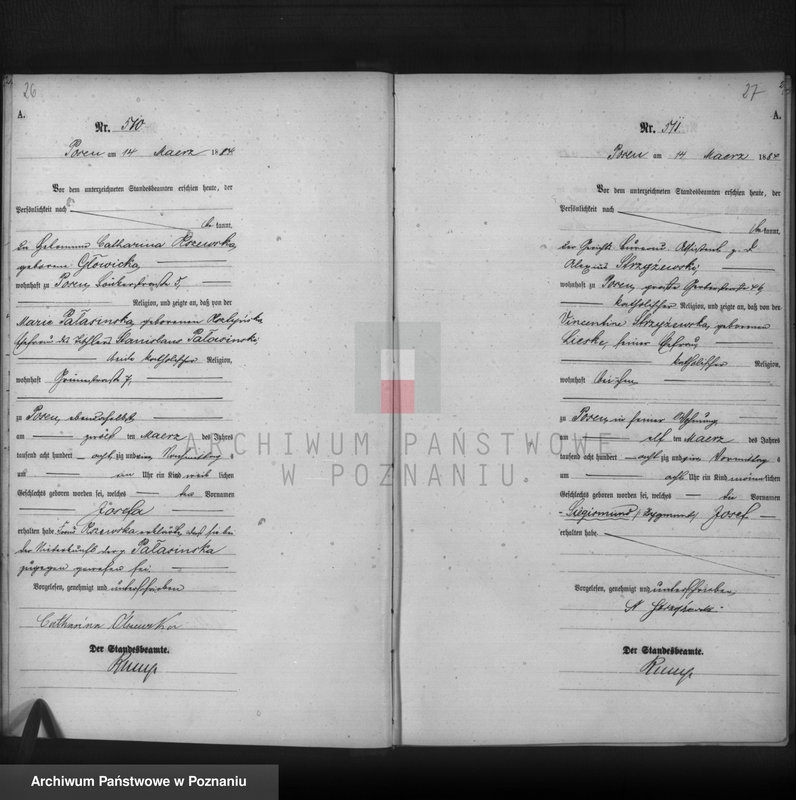 26
A.
Nr. 510
Posen am 14 Maerz 1884
Vor dem unterzeichneten Standesbeamten erschien heute, der
Persönlichkeit nach
be kannt,
die Hebamme Catharina Olszewska,
geborene Głowicka,
wohnhaft zu Posen, 5,
Religion, und zeigte an, daß von der
Marie Pałasinska, geborenen
Ehefrau des Stanislaus Pałasinski
beide katholischer Religion,
wohnhaft 7,
zu Posen, ebendaselbst,
am zwölf ten Maerz des Jahres
tausend acht hundert acht zig und vier Nachmittag s
um ein Uhr ein Kind weib lichen
Geschlechts geboren worden sei, welches den Vornamen
Josefa
erhalten habe. Frau Olszewska erklärte, daß sie bei
der Niederkunft der p. Pałasinska
zugegen gewesen sei.
Vorgelesen, genehmigt und unterschrieben
Catharina Olszewska
Der Standesbeamte.
27
A.
Nr. 511
Posen am 14 Maerz 1884
Vor dem unterzeichneten Standesbeamten erschien heute, der
Persönlichkeit nach
be kannt,
der Gerichts Büreau Assistent
Strzyżewski,
wohnhaft zu Posen, große Gerberstraße
katholischer Religion, und zeigte an, daß von der
Vincentine Strzyżewska, geborenen
Lieske, seiner Ehefrau
katholischer Religion,
wohnhaft bei ihm
zu Posen in seiner Wohnung
am elf ten Maerz des Jahres
tausend acht hundert acht zig und vier Vormittag s
um acht Uhr ein Kind männ lichen
Geschlechts geboren worden sei, welches die Vornamen
Siegismund (Zygmunt) Josef
erhalten habe.
Vorgelesen, genehmigt und unterschrieben
Der Standesbeamte.
ARCHIWUM PAŃSTWOWE
W POZNANIU
Archiwum Państwowe w Poznaniu